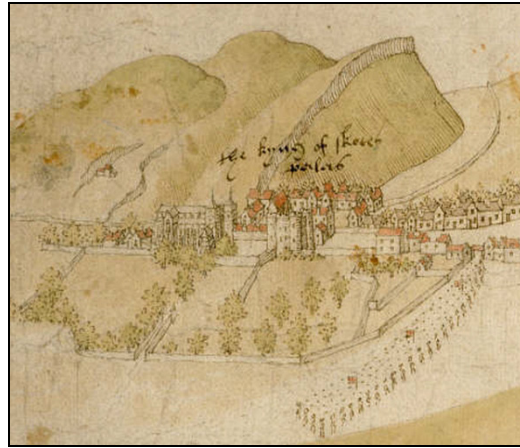 the kyng of skotes
palas